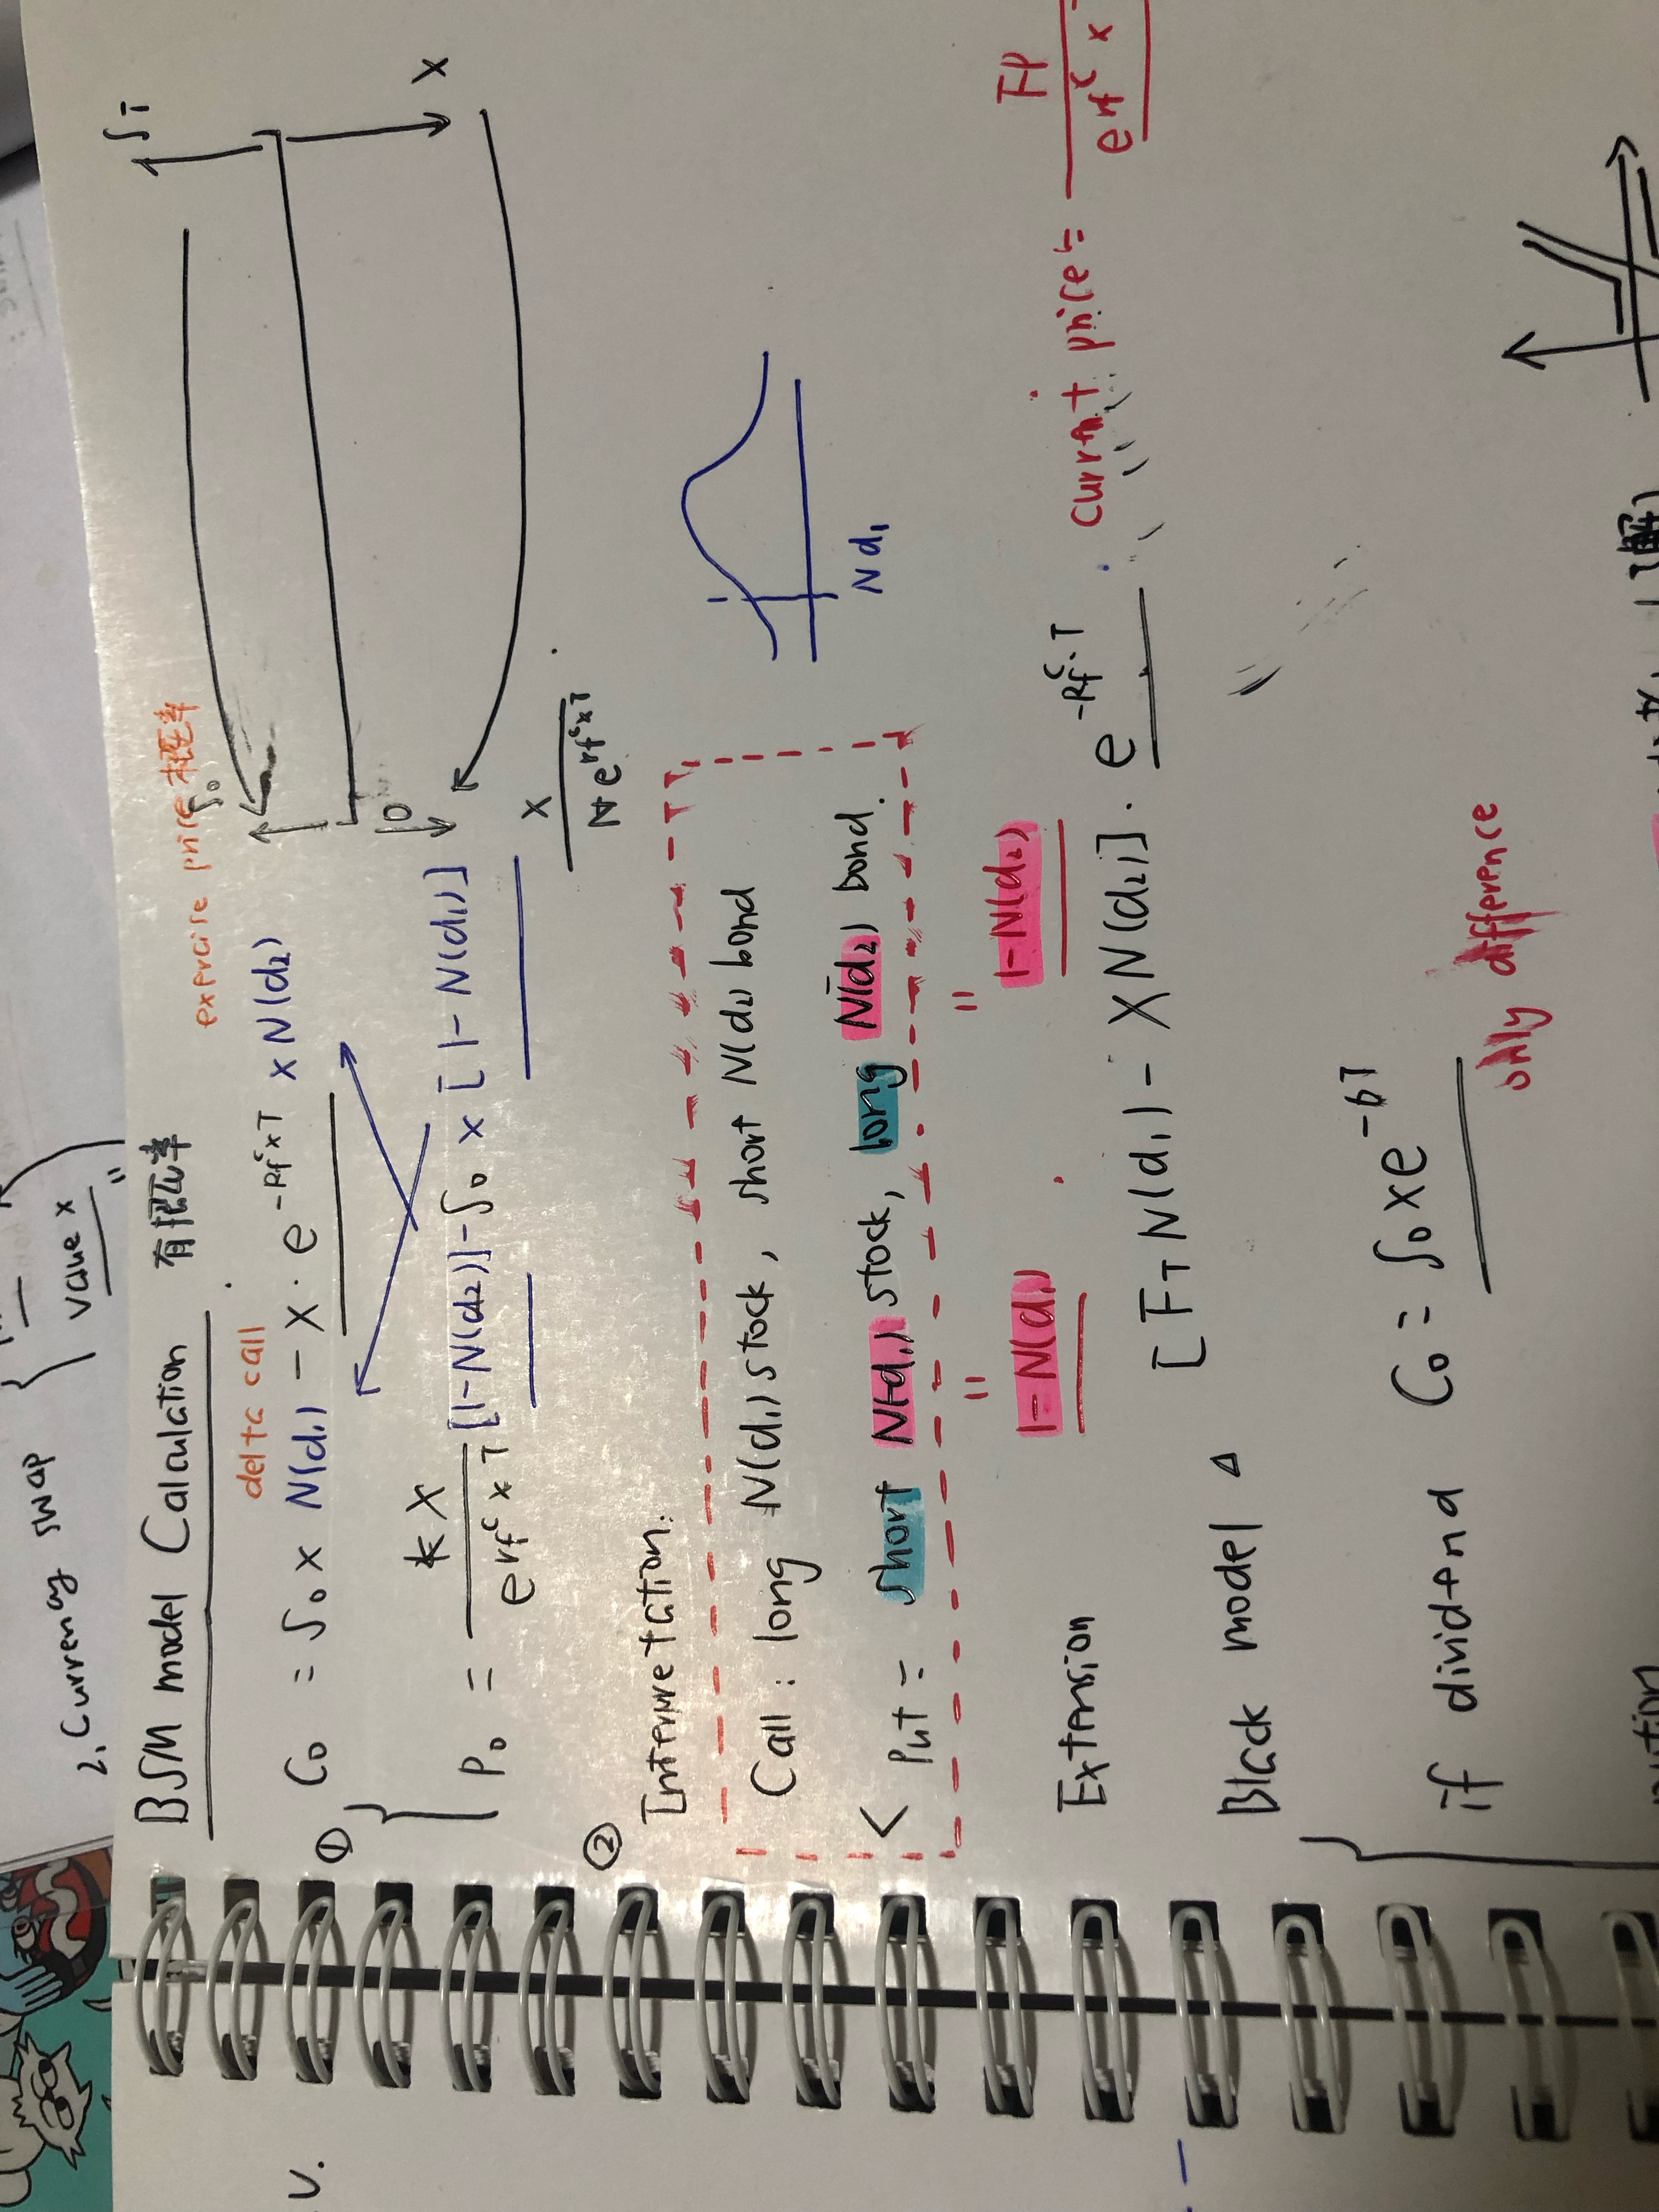 2. Currency swap
value x
BSM model Calculation 有概率
delta call
exercise price 概率
① C₀ = S₀ x N(d₁) - X · e^-Rfᶜ x T x N(d₂)
P₀ = X / e^rfᶜ x T [1-N(d₂)] - S₀ x [1-N(d₁)]
S₀
S_T
X
X
e^rfᶜ x T
② Interpretation:
Call : long N(d₁) stock, short N(d₂) bond
Put = short N(-d₁) stock, long N(-d₂) bond.
N d₁
"
"
1-N(d₁)
1-N(d₂)
Extension
Black model
[F_T N(d₁) - X N(d₂)] · e^-Rfᶜ·T
current price = FP / e^rfᶜ x
if dividend C₀ = S₀ x e^-δT
only difference